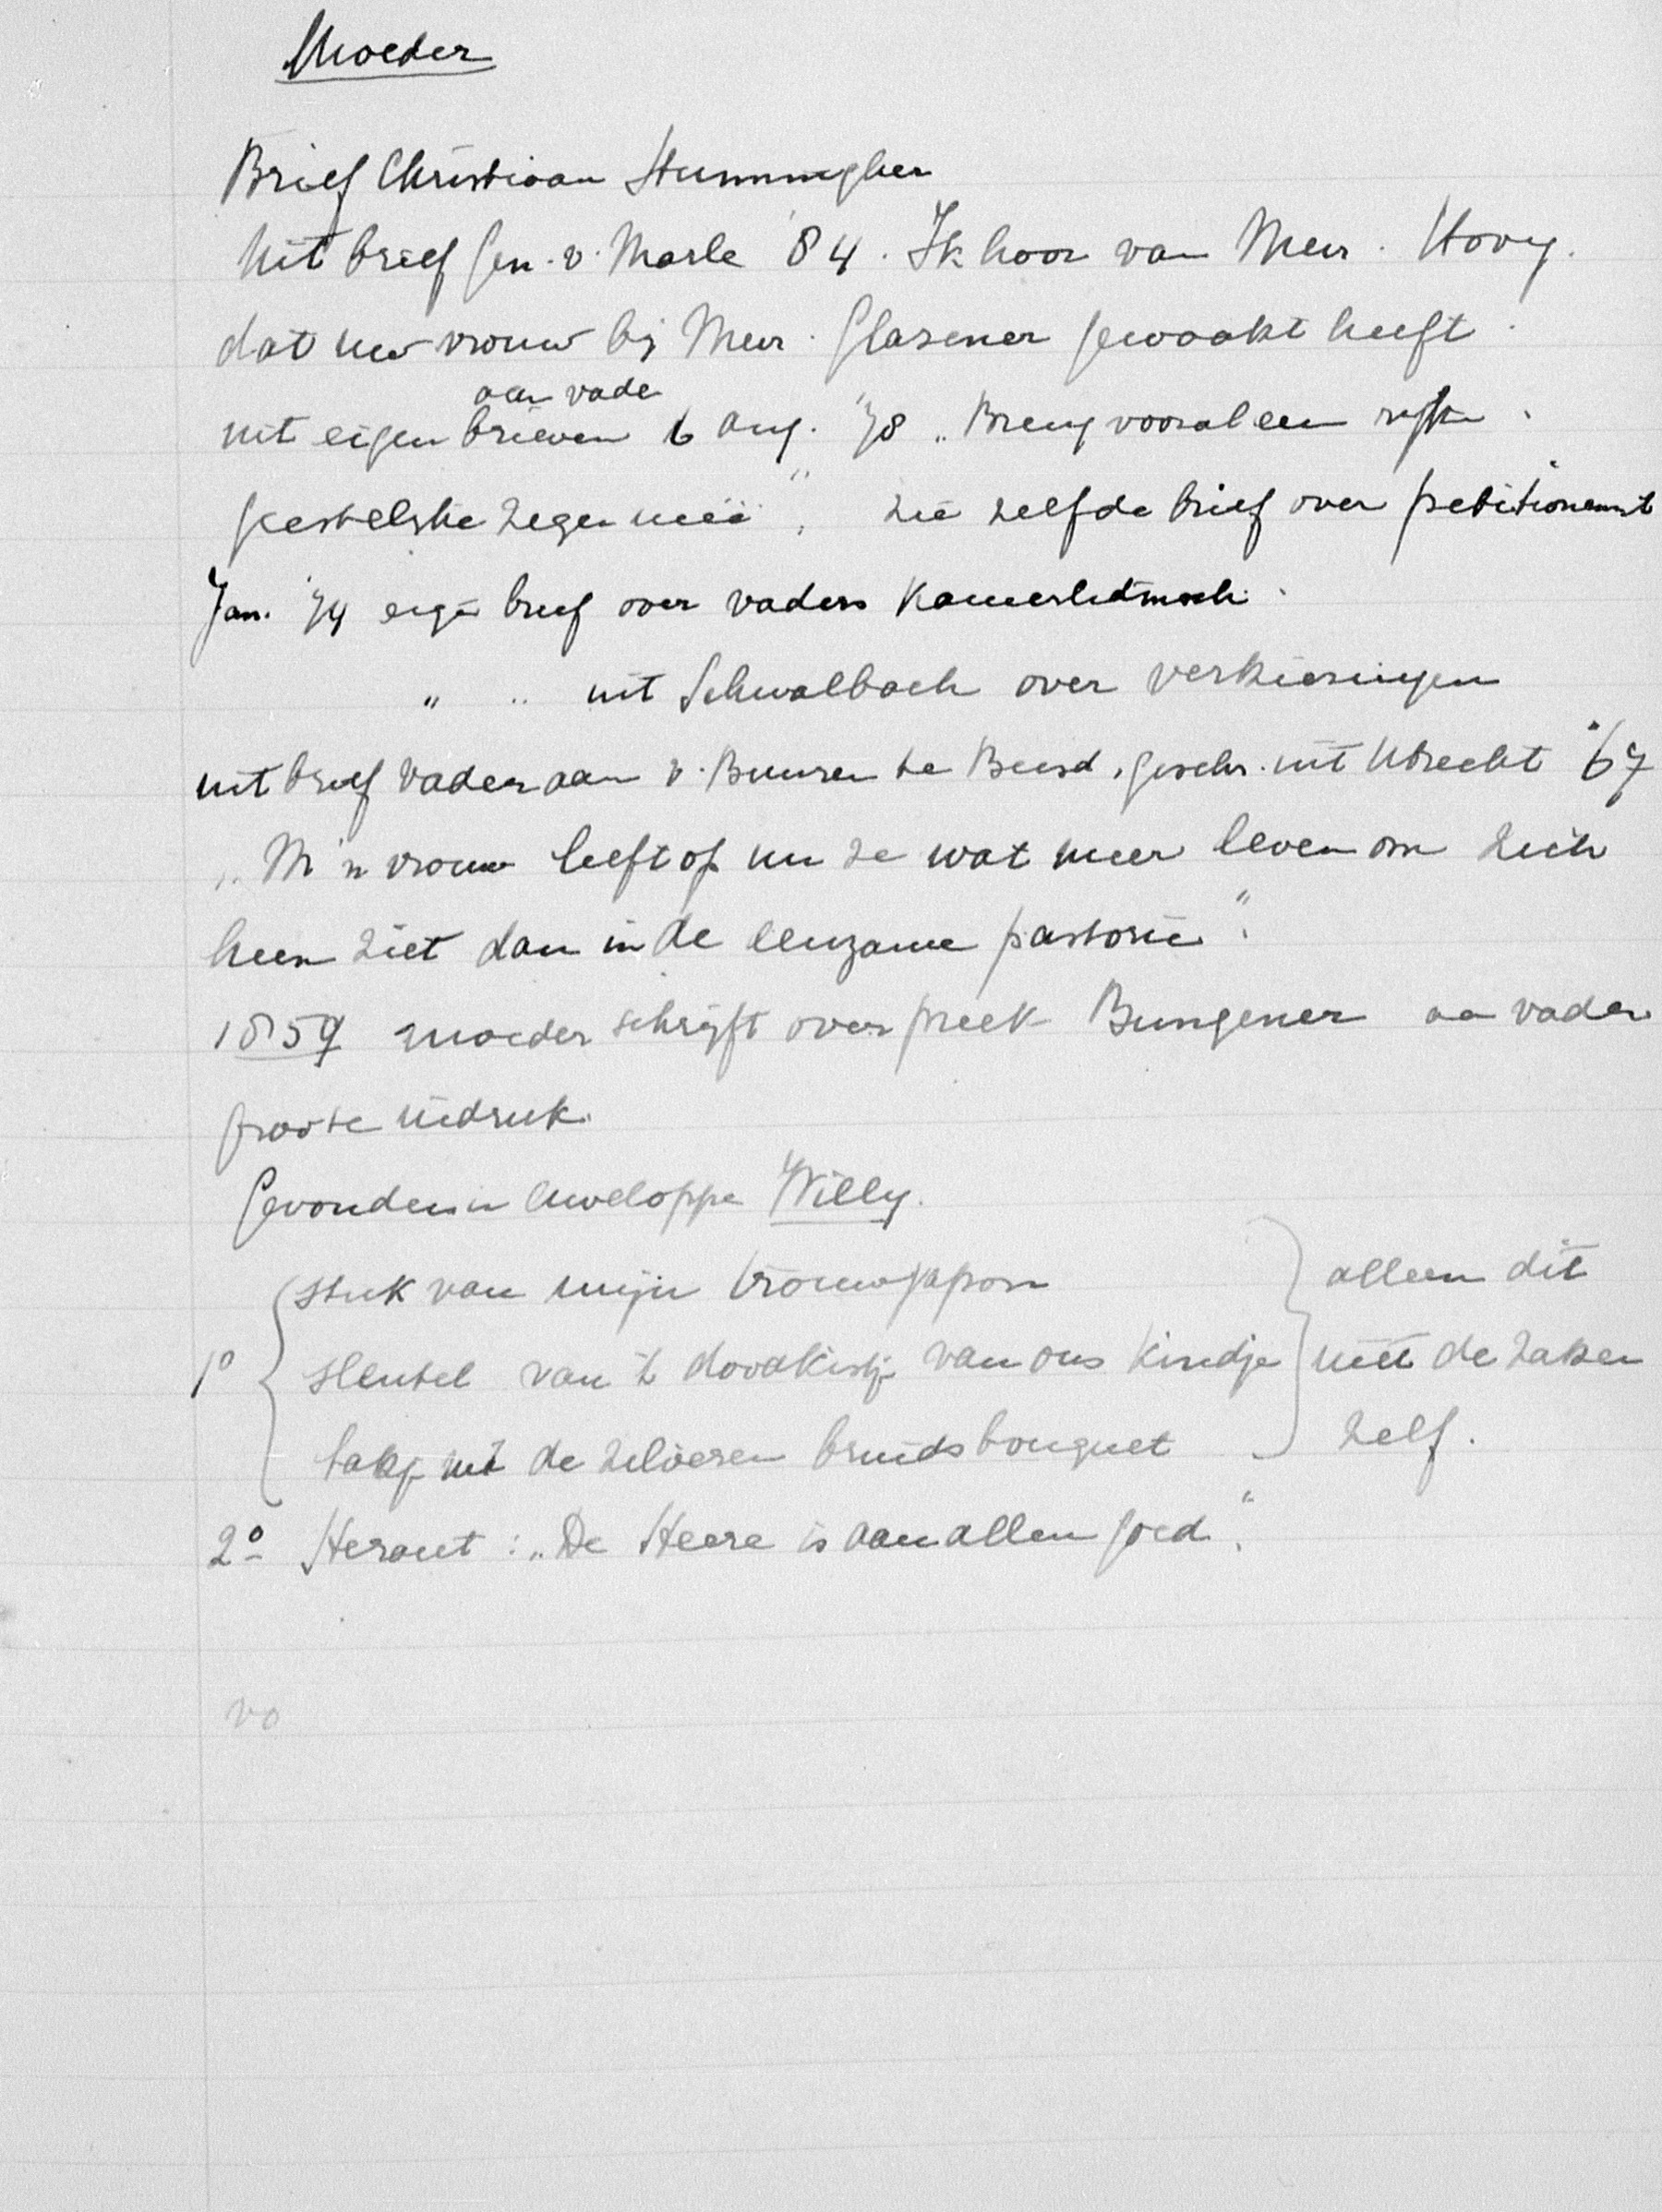 Moeder
Brief Christiaan Hunningher
Uit brief Gen. v. Marle '84. Ik hoor van Mevr. Hovy.
dat uw vrouw bij Mevr. Glasener gewaakt heeft.
aan vade
uit eigen brieven 6 Aug. '78 „Breng vooral een rijken
geestelyke zegen meê", zie zelfde brief over petitionemt
Jan. '74 eigen brief over vaders Kamerlidmsch.
" " uit Schwalbach over verkiezingen
uit brief Vader aan v. Buuren te Beesd, geschr. uit Utrecht '67
„M'n vrouw leeft op nu ze wat meer leven om zich
heen ziet dan in de eenzame pastorie".
1859 moeder schrijft over preek Bungener aa vader
groote indruk.
Gevonden in enveloppe Willy.
stuk van mijn trouwjapon
1o sleutel van 't doodkistje van ons kindje
takje uit de zilveren bruidsbouquet
alleen dit
niet de zaken
zelf.
2o Heraut: „De Heere is aan allen goed".
vo